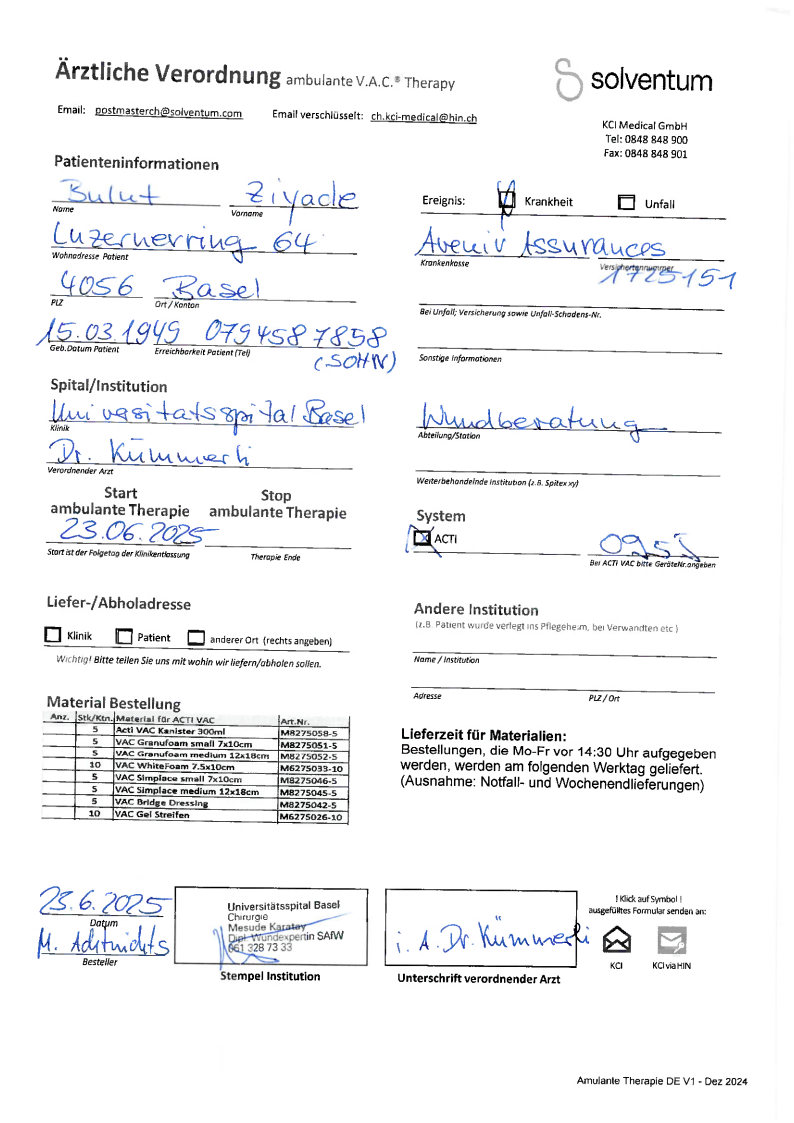 Ärztliche Verordnung ambulante V.A.C.® Therapy
solventum
Email: postmasterch@solventum.com Email verschlüsselt: ch.kci-medical@hin.ch
KCI Medical GmbH
Tel: 0848 848 900
Fax: 0848 848 901
Patienteninformationen
Bulut Ziyade
Name Vorname
Ereignis: Krankheit Unfall
Luzernerring 64
Wohnadresse Patient
Avenir Assurances
Krankenkasse Versichertennummer
1725151
4056 Basel
PLZ Ort / Kanton
Bei Unfall; Versicherung sowie Unfall-Schadens-Nr.
15.03.1949 079 458 7858
Geb.Datum Patient Erreichbarkeit Patient (Tel)
(SOHN)
Sonstige Informationen
Spital/Institution
Universitätsspital Basel
Klinik
Wundberatung
Abteilung/Station
Dr. Kümmerli
Verordnender Arzt
Weiterbehandelnde Institution (z.B. Spitex xy)
Start ambulante Therapie
Stop ambulante Therapie
23.06.2025
Start ist der Folgetag der Klinikentlassung Therapie Ende
System
ACTi
Bei ACTI VAC bitte GeräteNr.angeben
Liefer-/Abholadresse
Klinik Patient anderer Ort (rechts angeben)
Wichtig! Bitte teilen Sie uns mit wohin wir liefern/abholen sollen.
Andere Institution
(z.B. Patient wurde verlegt ins Pflegeheim, bei Verwandten etc.)
Name / Institution
Adresse PLZ / Ort
Material Bestellung
Anz. Stk/Ktn. Material für ACTI VAC Art.Nr.
5 Acti VAC Kanister 300ml M8275058-5
5 VAC Granufoam small 7x10cm M8275051-5
5 VAC Granufoam medium 12x18cm M8275052-5
10 VAC WhiteFoam 7.5x10cm M6275033-10
5 VAC Simplace small 7x10cm M8275046-5
5 VAC Simplace medium 12x18cm M8275045-5
5 VAC Bridge Dressing M8275042-5
10 VAC Gel Streifen M6275026-10
Lieferzeit für Materialien:
Bestellungen, die Mo-Fr vor 14:30 Uhr aufgegeben
werden, werden am folgenden Werktag geliefert.
(Ausnahme: Notfall- und Wochenendlieferungen)
23.6.2025
Datum
M.
Besteller
Universitätsspital Basel
Chirurgie
Mesude Karatay
Dipl. Wundexpertin SAfW
061 328 73 33
Stempel Institution
i. A. Dr. Kümmerli
Unterschrift verordnender Arzt
! Klick auf Symbol !
ausgefülltes Formular senden an:
KCI KCI via HIN
Amulante Therapie DE V1 - Dez 2024